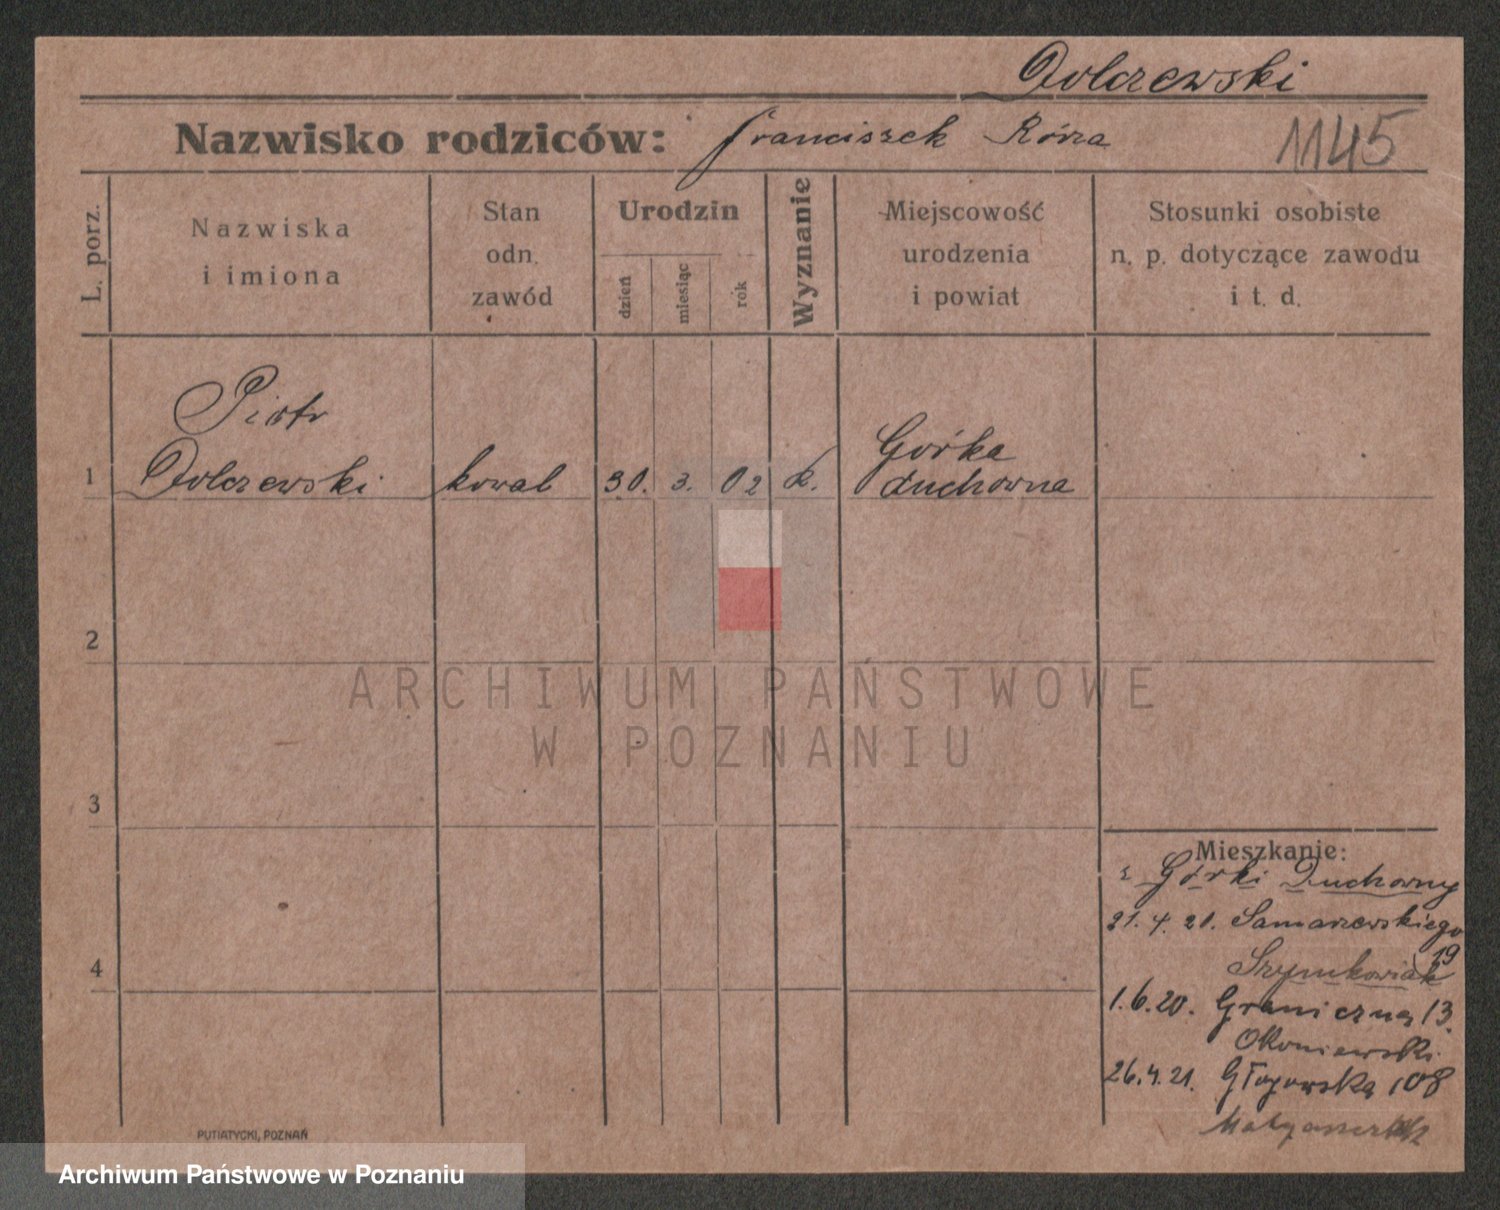 Dolczewski
Nazwisko rodziców: Franciszek Róża
1145
L. porz.
Nazwiska
i imiona
Stan
odn.
zawód
Urodzin
dzień
miesiąc
rok
Wyznanie
Miejscowość
urodzenia
i powiat
Stosunki osobiste
n. p. dotyczące zawodu
i t. d.
1
Piotr
Dolczewski
kowal
30.
3.
02
k.
Górka
duchowna
2
ARCHIWUM PAŃSTWOWE
W POZNANIU
3
Mieszkanie:
z Górki Duchowny
21. 4. 20. Samarzewskiego
19
4
Szymkowiak
1.6.20. Graniczna 13.
Okoniewski
26.4.21. Głogowska 108
PUTIATYCKI, POZNAŃ
Archiwum Państwowe w Poznaniu